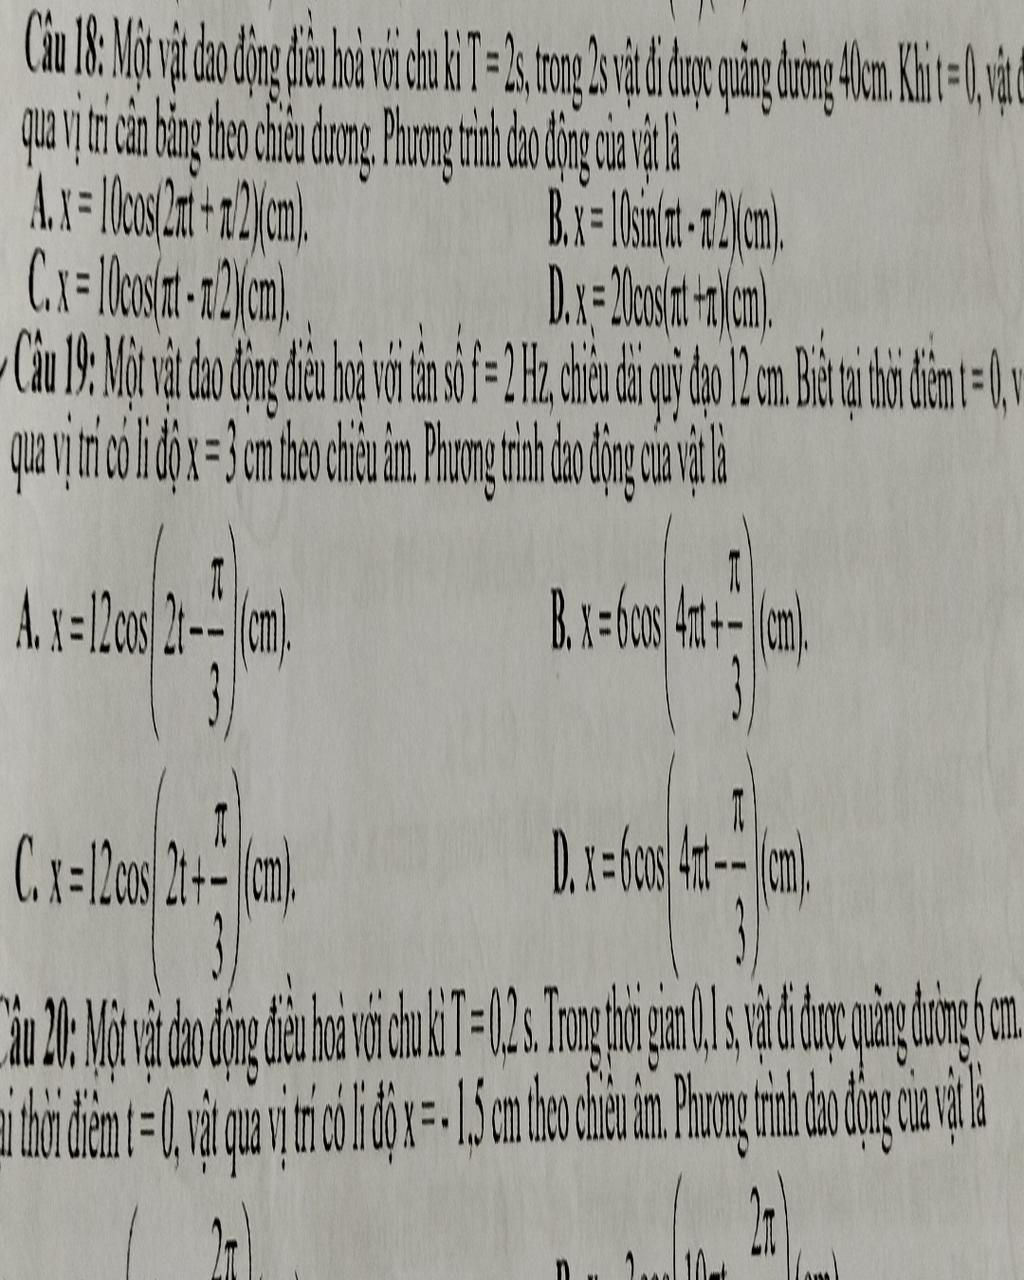 Câu 18: Một vật dao động điều hoà với chu kì T = 2s, trong 2s vật đi được quãng đường 40cm. Khi t = 0, vật
qua vị trí cân bằng theo chiều dương. Phương trình dao động của vật là
A. x = 10cos(2πt + π/2)(cm). B. x = 10sin(πt - π/2)(cm).
C. x = 10cos(πt - π/2)(cm). D. x = 20cos(πt +π)(cm).
Câu 19: Một vật dao động điều hoà với tần số f = 2 Hz, chiều dài quỹ đạo 12 cm. Biết tại thời điểm t = 0,
qua vị trí có li độ x = 3 cm theo chiều âm. Phương trình dao động của vật là
A. x = 12cos(2t - π/3)(cm). B. x = 6cos(4πt + π/3)(cm).
C. x = 12cos(2t + π/3)(cm). D. x = 6cos(4πt - π/3)(cm).
Câu 20: Một vật dao động điều hoà với chu kì T = 0,2 s. Trong thời gian 0,1 s, vật đi được quãng đường 6 cm.
thời điểm t = 0, vật qua vị trí có li độ x = - 1,5 cm theo chiều âm. Phương trình dao động của vật là
2π 2π